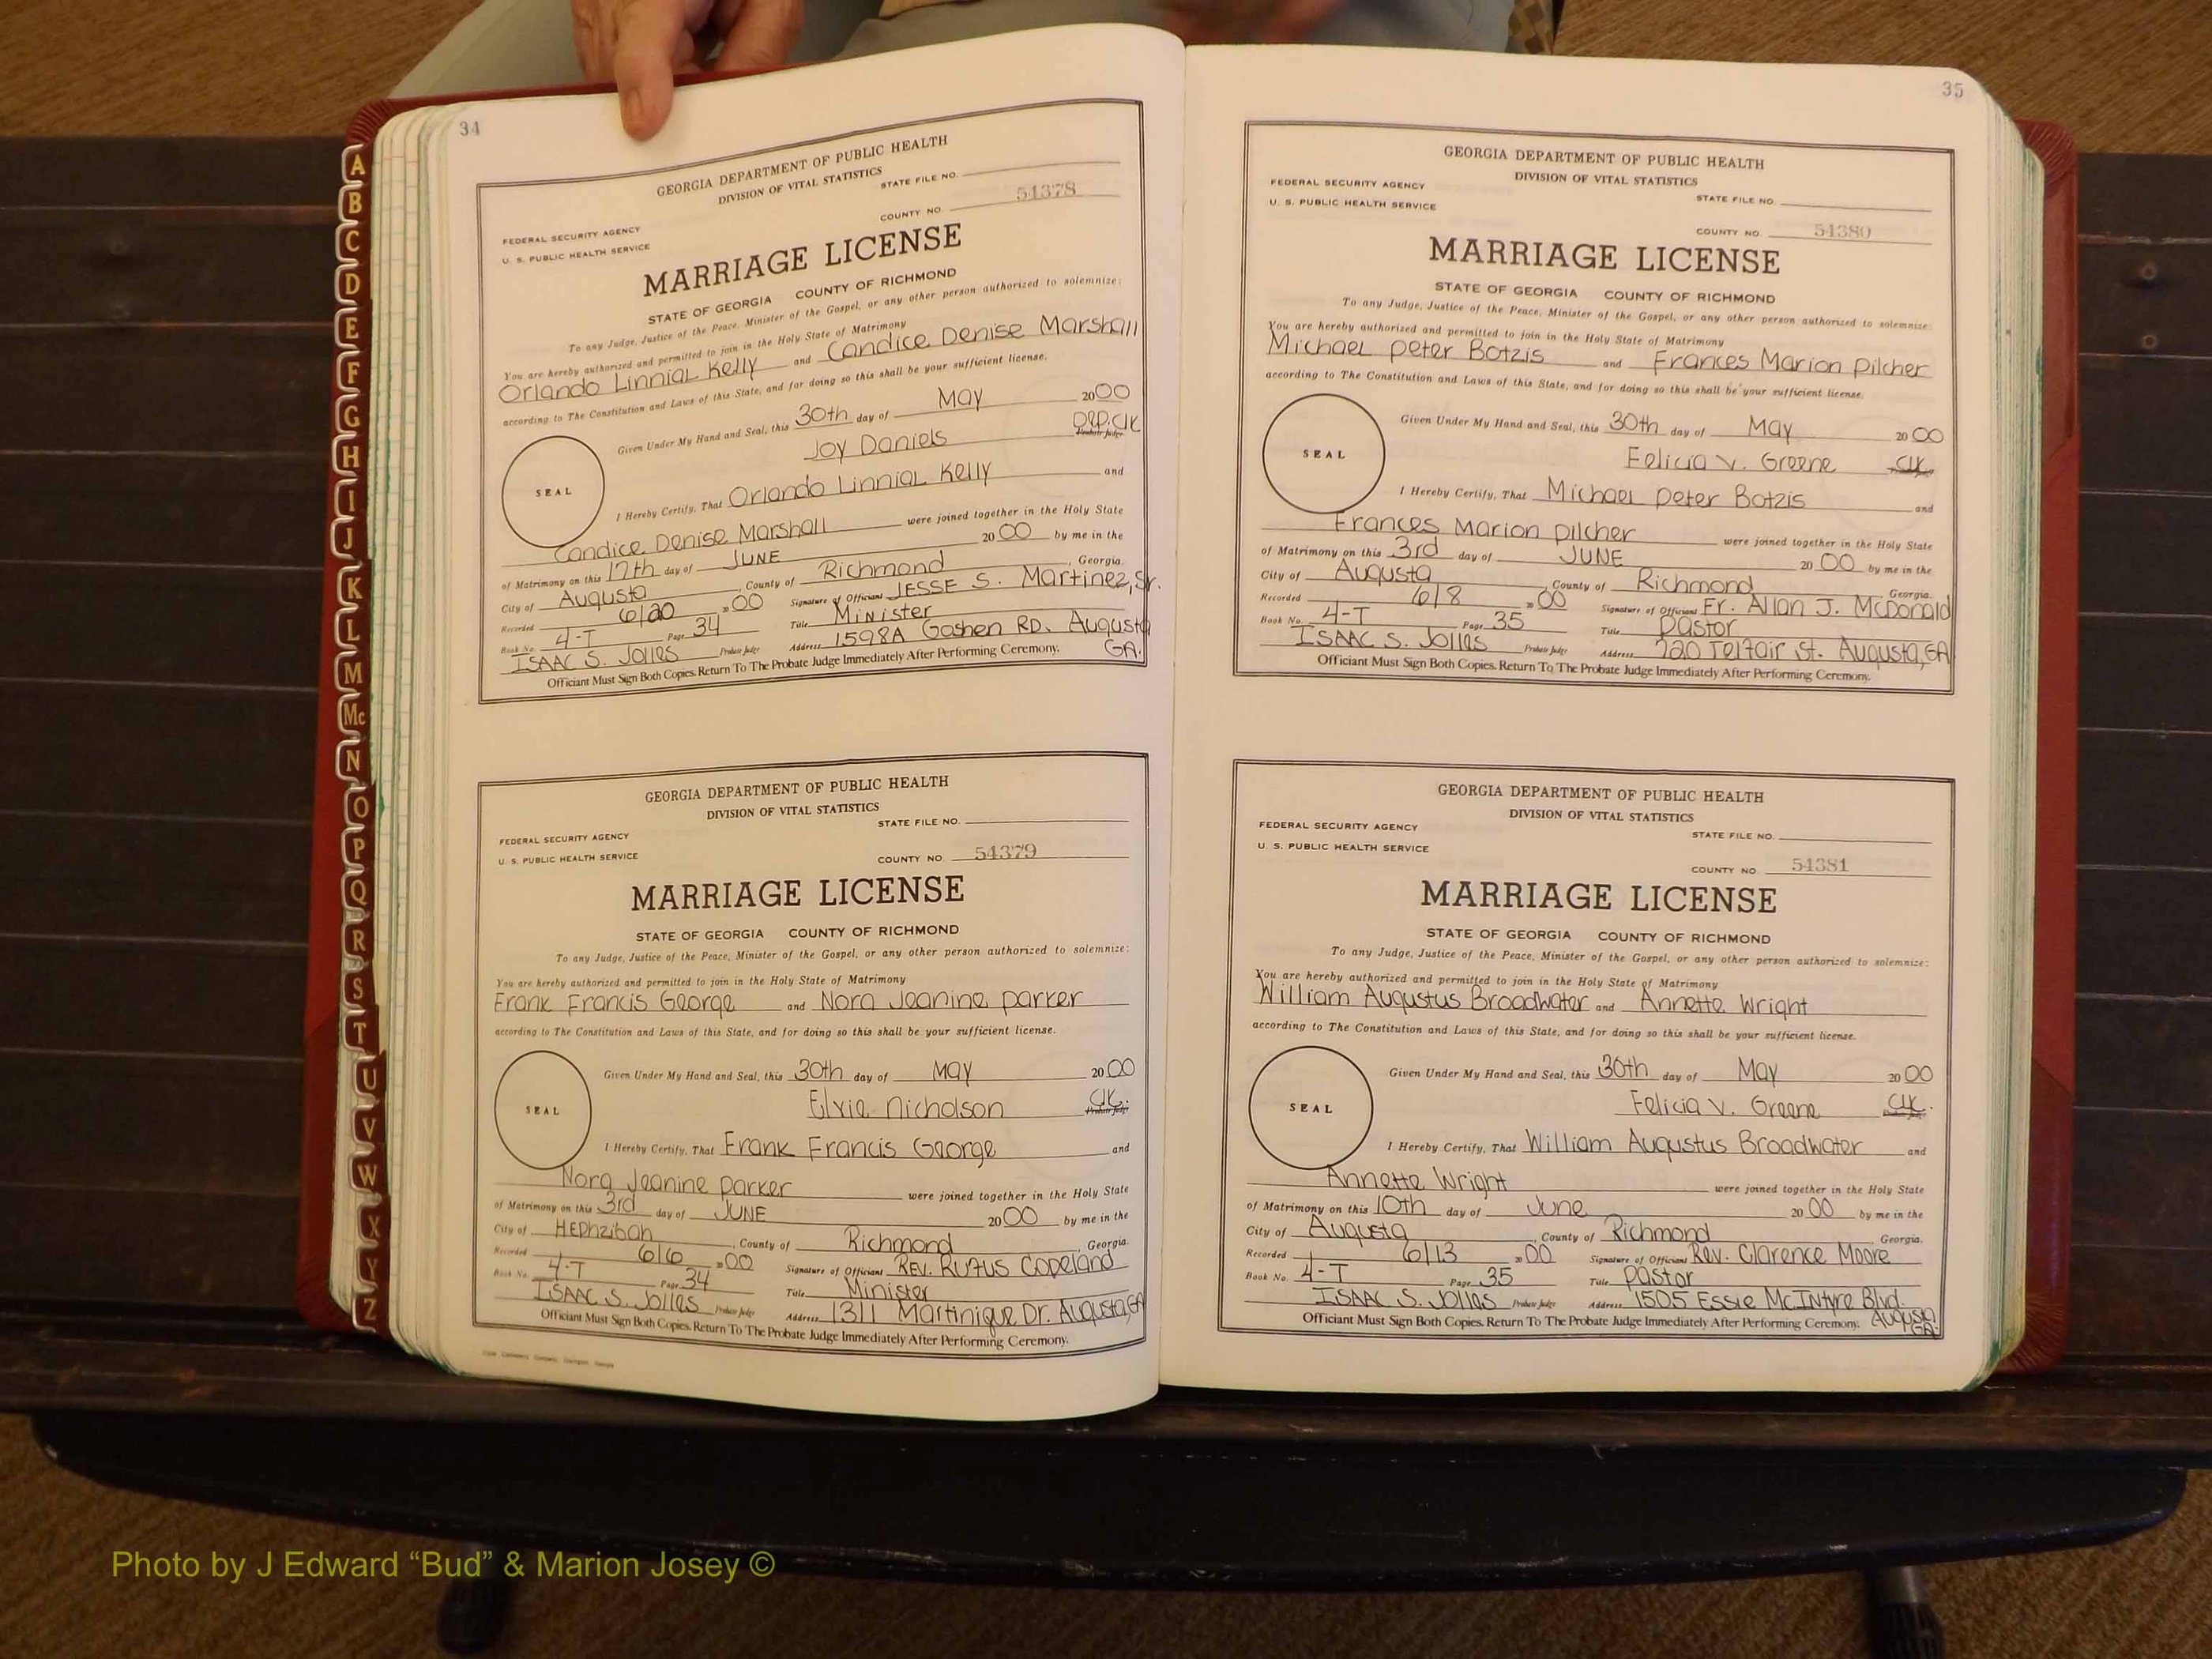 A
B
C
D
E
F
G
H
I
J
K
L
M
Mc
N
O
P
Q
R
S
T
U
V
W
X
Y
Z
34
GEORGIA DEPARTMENT OF PUBLIC HEALTH
DIVISION OF VITAL STATISTICS
STATE FILE NO.
COUNTY NO. 54378
FEDERAL SECURITY AGENCY
U. S. PUBLIC HEALTH SERVICE
MARRIAGE LICENSE
STATE OF GEORGIA COUNTY OF RICHMOND
To any Judge, Justice of the Peace, Minister of the Gospel, or any other person authorized to solemnize:
You are hereby authorized and permitted to join in the Holy State of Matrimony
Orlando Linnial Kelly and Candice Denise Marshall
according to The Constitution and Laws of this State, and for doing so this shall be your sufficient license.
Given Under My Hand and Seal, this 30th day of May 2000
Joy Daniels Dep. Clk
Probate Judge
SEAL
I Hereby Certify, That Orlando Linnial Kelly and
Candice Denise Marshall were joined together in the Holy State
of Matrimony on this 17th day of JUNE 2000 by me in the
City of Augusta, County of Richmond, Georgia.
Recorded 6/20 2000 Signature of Officiant JESSE S. Martinez, Sr.
Book No. 4-T Page 34 Title Minister
ISAAC S. Jolles Probate Judge Address 1598A Goshen RD. Augusta
GA.
Officiant Must Sign Both Copies. Return To The Probate Judge Immediately After Performing Ceremony.
GEORGIA DEPARTMENT OF PUBLIC HEALTH
DIVISION OF VITAL STATISTICS
STATE FILE NO.
FEDERAL SECURITY AGENCY
U. S. PUBLIC HEALTH SERVICE
COUNTY NO. 54379
MARRIAGE LICENSE
STATE OF GEORGIA COUNTY OF RICHMOND
To any Judge, Justice of the Peace, Minister of the Gospel, or any other person authorized to solemnize:
You are hereby authorized and permitted to join in the Holy State of Matrimony
Frank Francis George and Nora Jeanine Parker
according to The Constitution and Laws of this State, and for doing so this shall be your sufficient license.
Given Under My Hand and Seal, this 30th day of May 2000
Elvie Nicholson Clk.
Probate Judge
SEAL
I Hereby Certify, That Frank Francis George and
Nora Jeanine Parker were joined together in the Holy State
of Matrimony on this 3rd day of JUNE 2000 by me in the
City of Hephzibah, County of Richmond, Georgia.
Recorded 6/6 2000 Signature of Officiant REV. RUFUS Copeland
Book No. 4-T Page 34 Title Minister
ISAAC S. Jolles Probate Judge Address 1311 Martinique Dr. Augusta, GA
Officiant Must Sign Both Copies. Return To The Probate Judge Immediately After Performing Ceremony.
35
GEORGIA DEPARTMENT OF PUBLIC HEALTH
DIVISION OF VITAL STATISTICS
FEDERAL SECURITY AGENCY
U. S. PUBLIC HEALTH SERVICE
STATE FILE NO.
COUNTY NO. 54380
MARRIAGE LICENSE
STATE OF GEORGIA COUNTY OF RICHMOND
To any Judge, Justice of the Peace, Minister of the Gospel, or any other person authorized to solemnize:
You are hereby authorized and permitted to join in the Holy State of Matrimony
Michael Peter Botzis and Frances Marion Pilcher
according to The Constitution and Laws of this State, and for doing so this shall be your sufficient license.
Given Under My Hand and Seal, this 30th day of May 2000
Felicia V. Greene Clk
SEAL
I Hereby Certify, That Michael Peter Botzis and
Frances Marion Pilcher were joined together in the Holy State
of Matrimony on this 3rd day of JUNE 2000 by me in the
City of Augusta, County of Richmond, Georgia.
Recorded 6/8 2000 Signature of Officiant Fr. Allan J. McDonald
Book No. 4-T Page 35 Title Pastor
ISAAC S. Jolles Probate Judge Address 720 Telfair St. Augusta, GA
Officiant Must Sign Both Copies. Return To The Probate Judge Immediately After Performing Ceremony.
GEORGIA DEPARTMENT OF PUBLIC HEALTH
DIVISION OF VITAL STATISTICS
FEDERAL SECURITY AGENCY
STATE FILE NO.
U. S. PUBLIC HEALTH SERVICE
COUNTY NO. 54381
MARRIAGE LICENSE
STATE OF GEORGIA COUNTY OF RICHMOND
To any Judge, Justice of the Peace, Minister of the Gospel, or any other person authorized to solemnize:
You are hereby authorized and permitted to join in the Holy State of Matrimony
William Augustus Broadwater and Annette Wright
according to The Constitution and Laws of this State, and for doing so this shall be your sufficient license.
Given Under My Hand and Seal, this 30th day of May 2000
Felicia V. Greene Clk.
SEAL
I Hereby Certify, That William Augustus Broadwater and
Annette Wright were joined together in the Holy State
of Matrimony on this 10th day of June 2000 by me in the
City of Augusta, County of Richmond, Georgia.
Recorded 6/13 2000 Signature of Officiant Rev. Clarence Moore
Book No. 4-T Page 35 Title Pastor
ISAAC S. Jolles Probate Judge Address 1505 Essie McIntyre Blvd.
Augusta GA.
Officiant Must Sign Both Copies. Return To The Probate Judge Immediately After Performing Ceremony.
Photo by J Edward “Bud” & Marion Josey ©